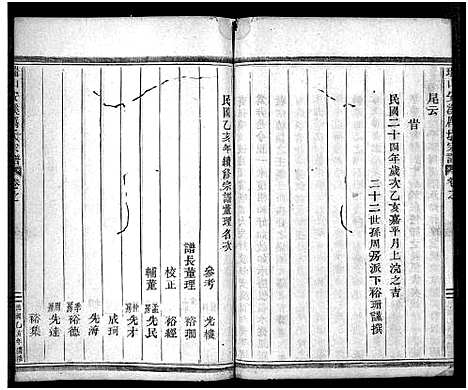 尾云
旹
民國二十四年歲次乙亥嘉平月上浣之吉
二十二世孫周房派下裕珊謹撰
民國乙亥年續修宗譜董理名次
參考 先樓
譜長董理 裕珊
校正 裕經
輔董 孟房先民
先才
成珂
先濤
季房裕德
周房先達
裕集